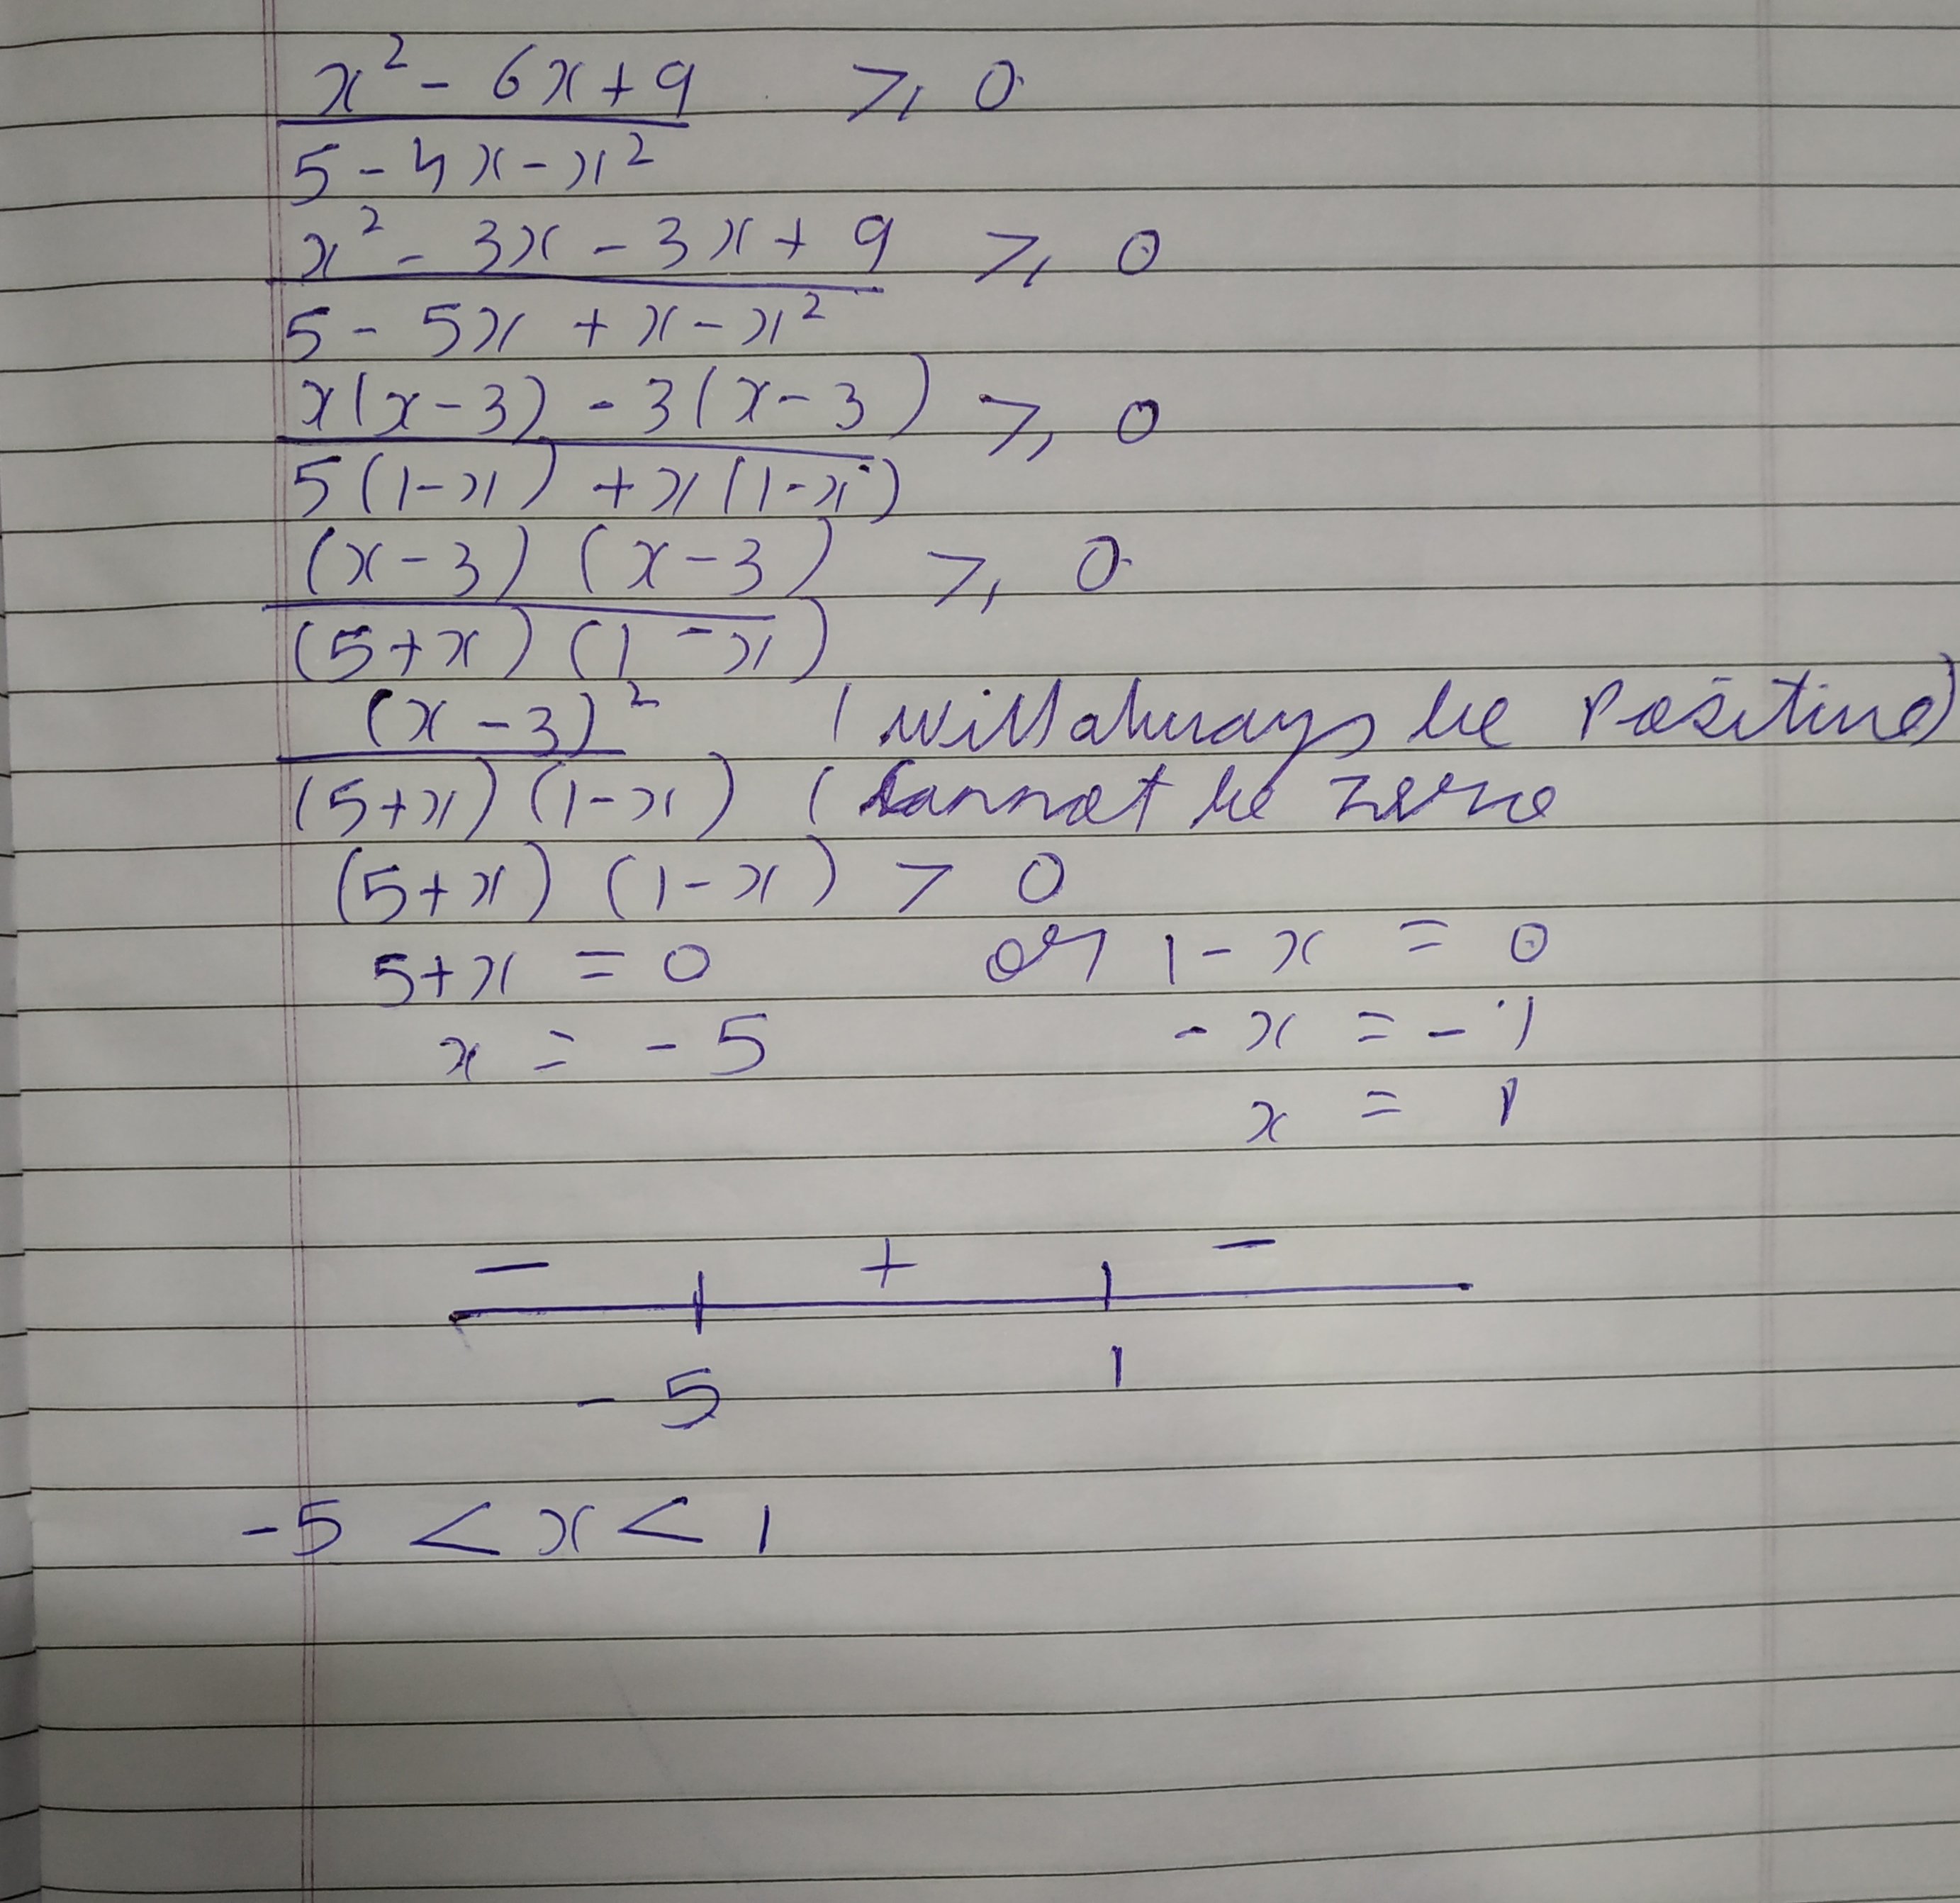 x² - 6x + 9 ≥ 0
5 - 4x - x²
x² - 3x - 3x + 9 ≥ 0
5 - 5x + x - x²
x(x-3) - 3(x-3) ≥ 0
5(1-x) + x(1-x)
(x-3) (x-3) ≥ 0
(5+x) (1-x)
(x-3)² (will always be Positive)
(5+x) (1-x) (Cannot be zero
(5+x) (1-x) > 0
5+x = 0 or 1-x = 0
x = -5 -x = -1
x = 1
- + -
-5 1
-5 < x < 1